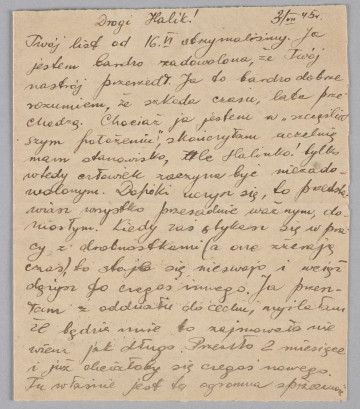 Drogi Halik! 3/VII 45r.
Twój list od 16.VI otrzymałośmy. Ja
jestem bardzo zadowolona, że Twój
nastrój przeszedł. Ja to bardzo dobrze
rozumiem, że szkoda czasu, lata prze
chodzą. Chociaż ja jestem w „szczęśliw
szym położeniu", skończyłam uczelnię
mam stanowisko, Ale Halinko! tylko
wtedy człowiek zaczyna być niezado-
wolonym. Dopóki uczysz się, to przedsta
wiasz wszystko przesadnie ważnym, do
niosłym. Kiedy zaś stykasz się w pra
cy z drobnostkami (a one zżerają
czas) to staje się nieswojo i wciąż
dążysz do czegoś innego. Ja przesz-
łam z oddziału do cechu, myślałam
że będzie mnie to zajmowało nie
wiem jak długo. Przeszło 2 miesiące
i już chciałoby się czegoś nowego.
Tu właśnie jest ta ogromna